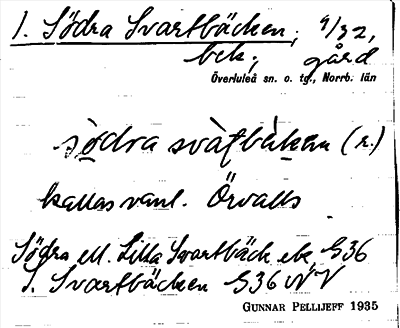 1. Södra Svartbäcken, 9/32,
bek., gård
Överluleå sn. o. tg., Norrb. län
södra svàʈbàkɛn (r.)
kallas vanl. Örvalls
Södra ell. Lilla Svartbäck ek. G36
S. Svartbäcken G36 NV
GUNNAR PELLIJEFF 1935